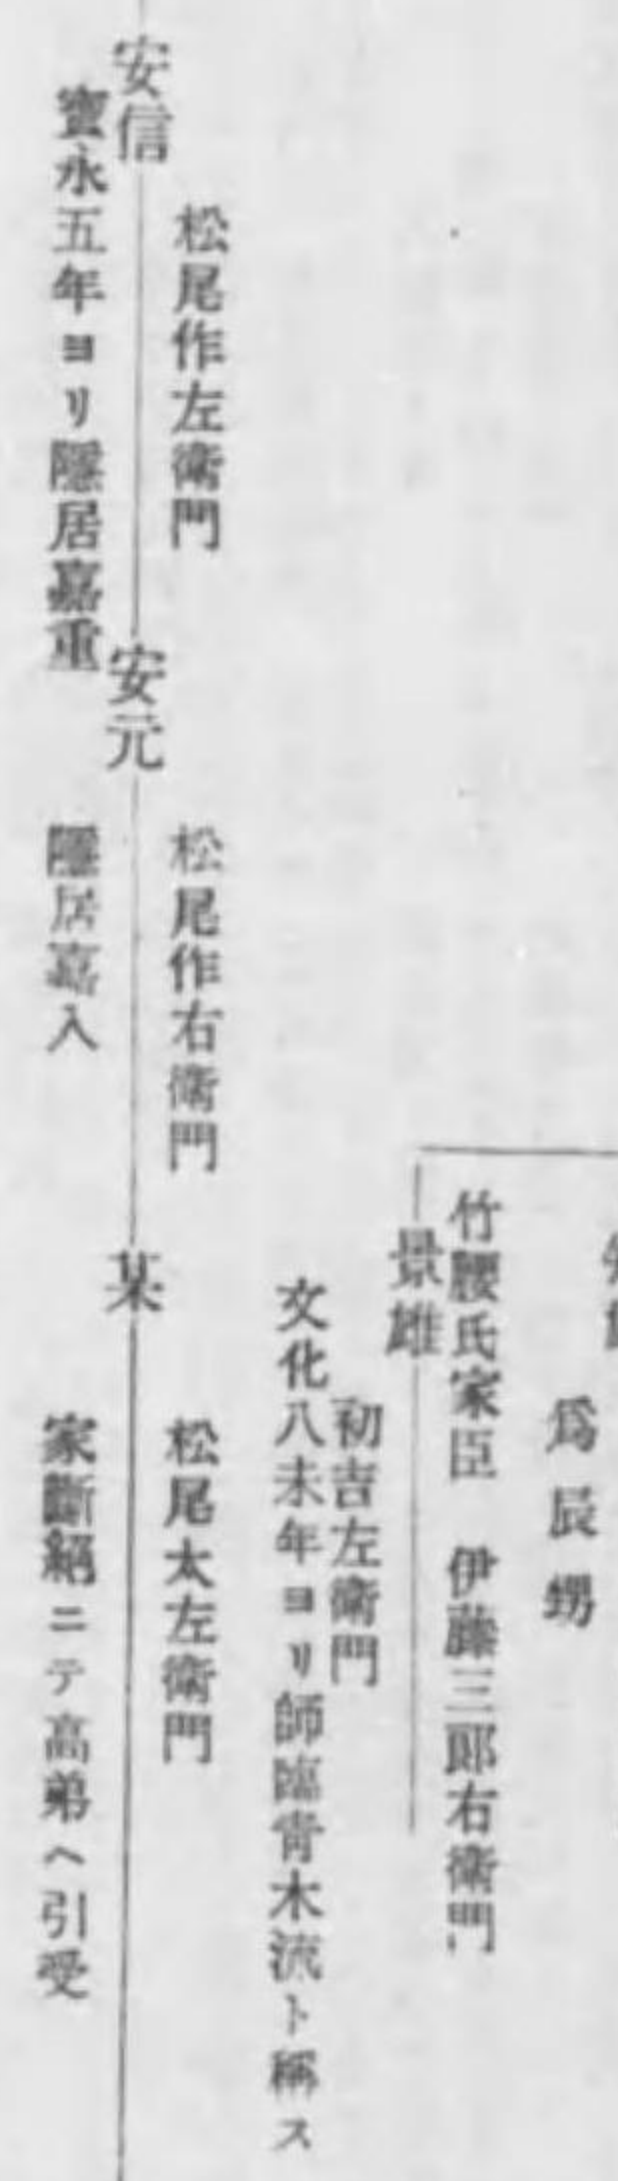 爲辰甥
竹腰氏家臣 伊藤三郎右衞門
景雄
初吉左衞門
文化八未年ヨリ師臨青木流ト稱ス
松尾作左衞門
安信
寶永五年ヨリ隱居嘉重
松尾作右衞門
安元
隱居嘉入
松尾太左衞門
某
家斷絕ニテ高弟ヘ引受